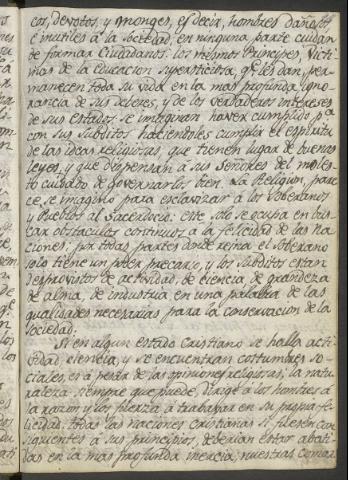 cos, devotos, y monges, es decir, hombres dañosos
e inutiles á la Sociedad en ninguna parte cuidan
de formar Ciudadanos. los mismos Principes, Victi-
mas de la educacion supersticiosa, qe. les dan, per-
manecen toda su vida en la mas profunda igno-
rancia de sus deberes, y de los verdaderos intereses
de sus estados. se imaginan haver cumplido pa.
con sus subditos haciendoles cumplir el espiritu
de las ideas religiosas, que tienen lugar de buenas
leyes, y que dispensan á sus Señores del moles-
to cuidado de governarlos bien. La Religion, pare-
ce, se imaginó para esclavizar á los Soberanos
y Pueblos al Sacerdocio: este solo se ocupa en bus-
car obstaculos continuos á la felicidad de las Na-
ciones: por todas partes donde reina el Soberano
solo tiene un poder precario, y los subditos estan
desprovistos de actividad, de ciencia, de grandeza
de alma, de industria, en una palabra de las
qualidades necesarias para la conservacion de la
Sociedad.
Si en algun estado Cristiano se halla acti-
vidad, ciencia, y se encuentran costumbres so-
ciales, es á pesar de las opiniones religiosas; la natu-
raleza, siempre que puede, dirige á los hombres á
la razon y los fuerza á trabajar en su propria fe-
licidad. todas las naciones cristianas si fuesen con-
siguientes á sus principios, deberian estar abati-
das en la mas profunda inercia; nuestras Comar